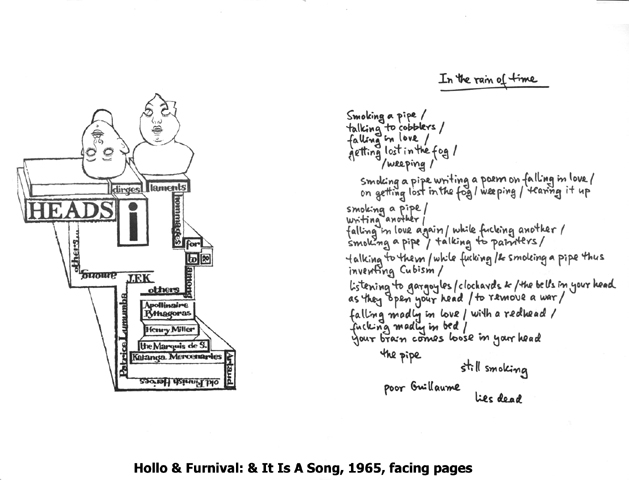 dirges
laments
HEADS
i
hommages
for
to
others...
among
J.F.K
among
others
Apollinaire
Pythagoras
Henry Miller
the Marquis de S.
Katanga Mercenaries
Patrice Lumumba
Artaud
old Finnish Heroes
In the rain of time
Smoking a pipe /
talking to cobblers /
falling in love /
getting lost in the fog /
/weeping /
smoking a pipe writing a poem on falling in love /
on getting lost in the fog / weeping / tearing it up
smoking a pipe /
writing another /
falling in love again / while fucking another /
smoking a pipe / talking to painters /
talking to them / while fucking / & smoking a pipe thus
inventing Cubism /
listening to gargoyles / clochards & / the bells in your head
as they open your head / to remove a war /
falling madly in love / with a redhead /
fucking madly in bed /
your brain comes loose in your head
the pipe
still smoking
poor Guillaume
lies dead
Hollo & Furnival: & It Is A Song, 1965, facing pages